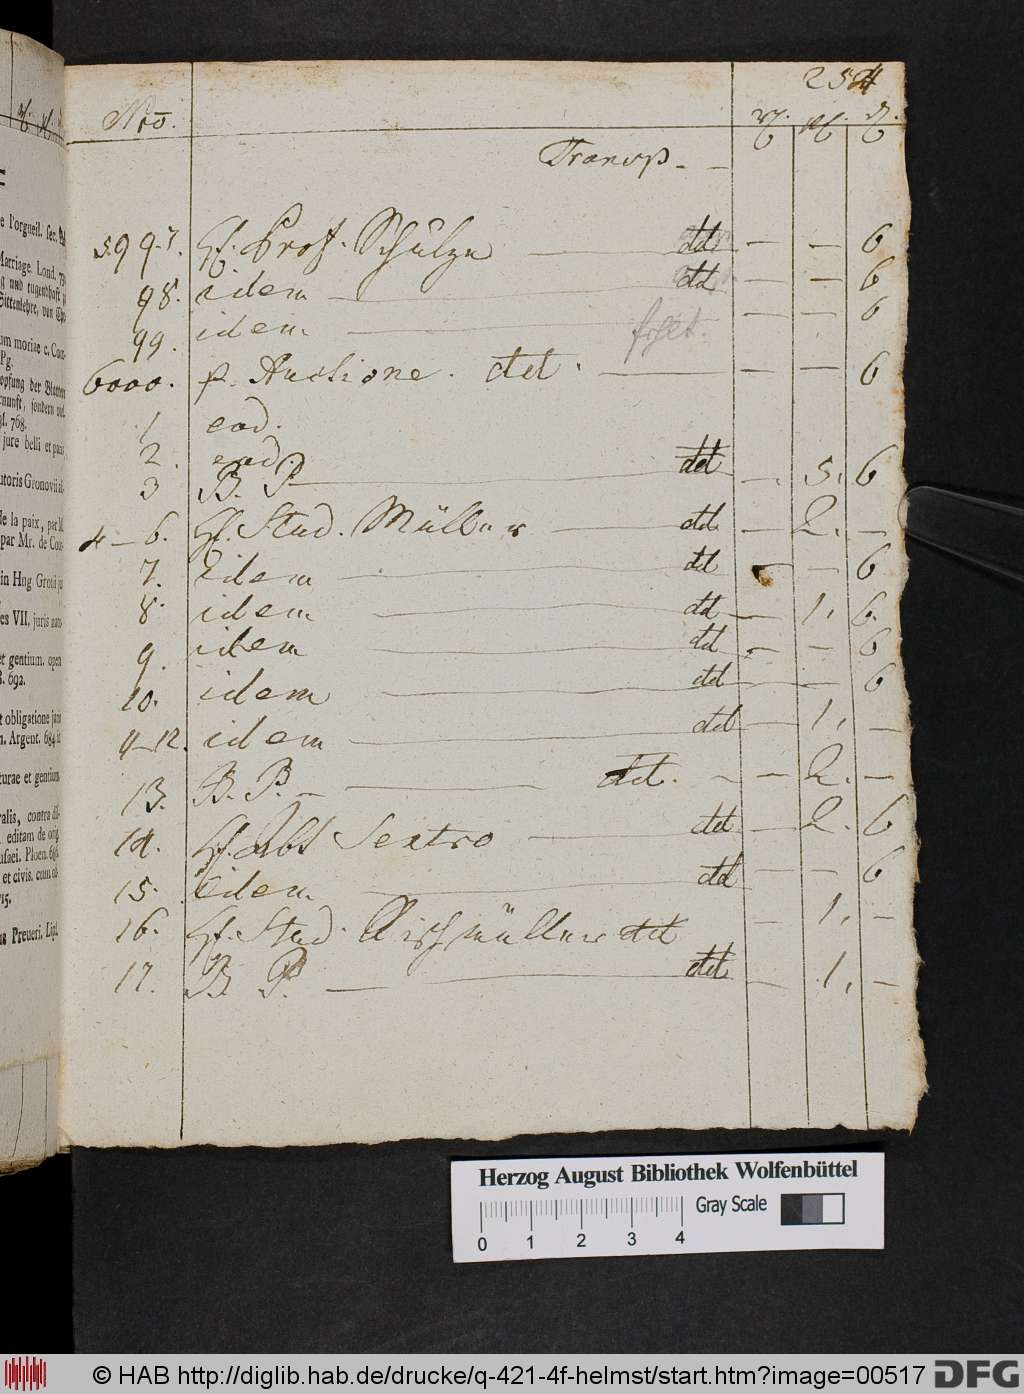 254
Nro.
Transp. - -
5997. H. Prof. Schulze — dd — — 6
98. idem — dd — — 6
99. idem — — — 6
fehlt.
6000. p. Auctione. dd. — — — 6
1 eod.
2. eod.
3 B. P. — dd — . 5. 6
4 — 6. H. Stud. Müller — dd. — 2. —
7. Idem — dd — — 6
8. idem — dd — 1. 6.
9. idem — dd — — 6
10. idem — dd — — 6
11-12. idem — dd — 1. —
13. B. P. — dd. — — 2. —
14. H. Abt Sextro — dd — 2. 6
15. Eidem — dd — — 6
16. H. Stud. dd — 1. —
17. B. P. — dd — 1. —
e l'orgueil. sec.
Marriage. Lond. 
ng und tugendhaft
Sittenlehre, von
um moriae c. Com-
Pg.
opfung der Blatter
nunft, sondern
gf. 768.
jure belli et pacis
utoris Gronovii
de la paix, par
par Mr. de Cour-
in Hug. Grotii
es VII, juris
et gentium.
B. 692.
t obligatione
n. Argent. 684
turae et gentium
ralis, contra
editam de orig.
usaei. Ploen.
et civis.
715.
us Preueri. Lips.
Herzog August Bibliothek Wolfenbüttel
Gray Scale
0 1 2 3 4
© HAB http://diglib.hab.de/drucke/q-421-4f-helmst/start.htm?image=00517 DFG